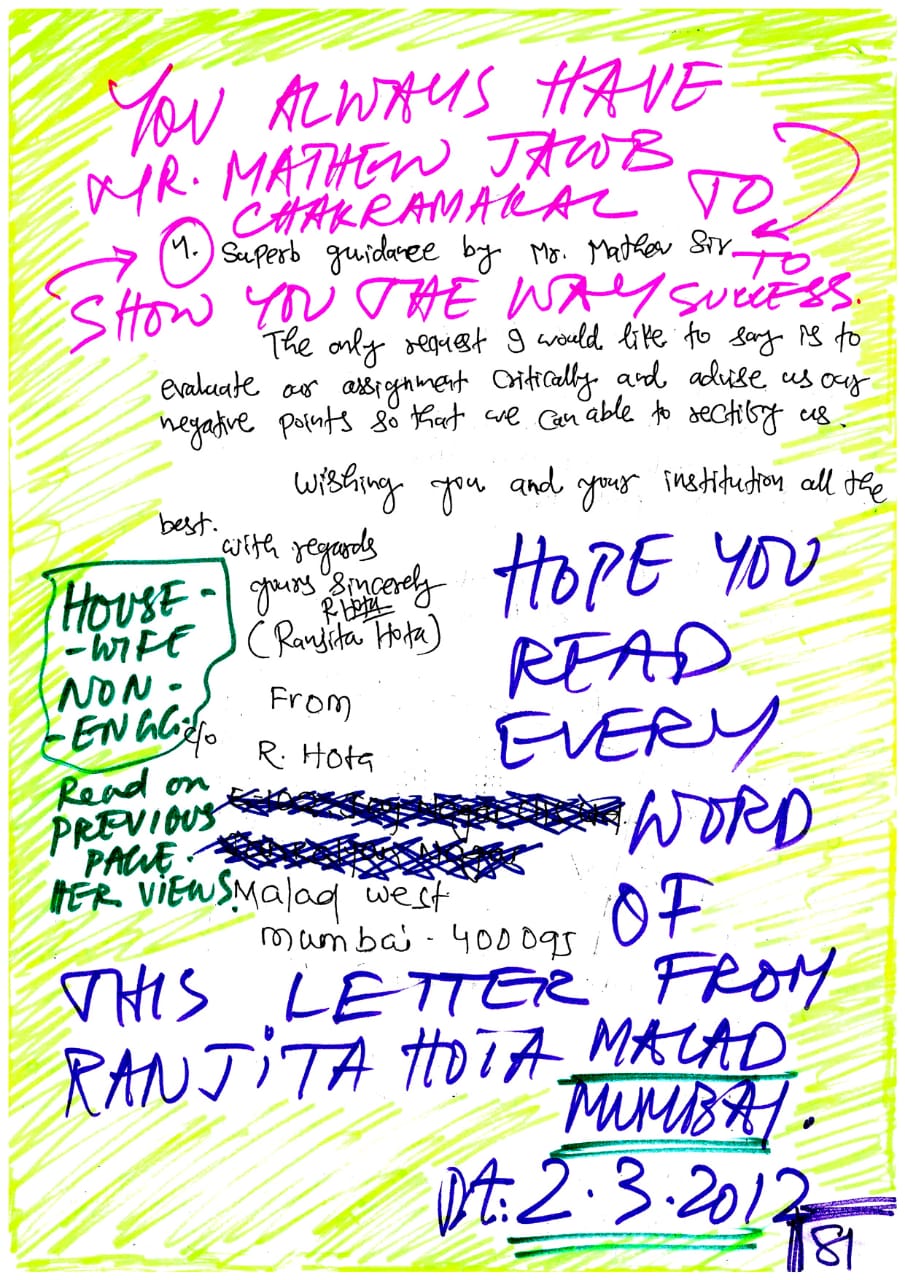 YOU ALWAYS HAVE
MR. MATHEW JACOB
CHAKRAMAKAL TO
4. Superb guidance by Mr. Mathew Sir
TO
SHOW YOU THE WAY SUCCESS.
The only request I would like to say is to
evaluate our assignment critically and advise us our
negative points so that we can able to rectiby us.
Wishing you and your institution all the
best.
with regards
yours sincerely
R Hota
(Ranjita Hota)
HOUSE-
-WIFE
NON-
-ENGG.
From
c/o
R. Hota
Read on
PREVIOUS
PAGE.
HER VIEWS.
Malad west
mumbai - 400095
HOPE YOU
READ
EVERY
WORD
OF
THIS LETTER FROM
RANJITA HOTA MALAD
MUMBAI.
DT: 2.3.2012
81